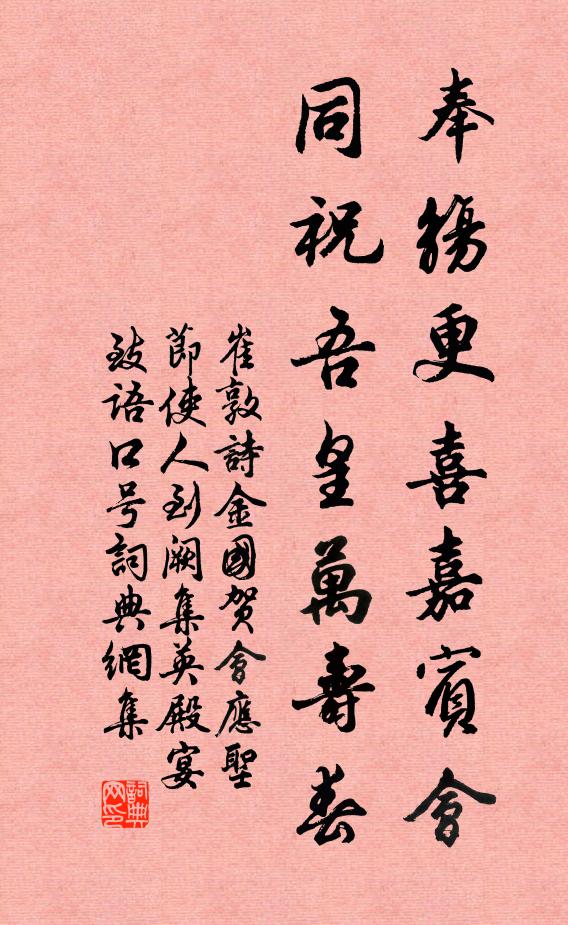 奉觴更喜嘉賓會
同祝吾皇萬壽春
崔敦詩金國賀會應聖
節使人到闕集英殿宴
致語口号詞典網集
詞典
网印